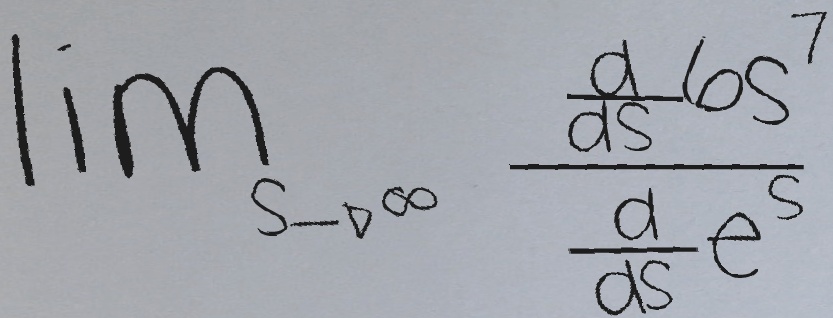 \lim_{s \to \infty} \frac{\frac{d}{ds} 6s^7}{\frac{d}{ds} e^s}